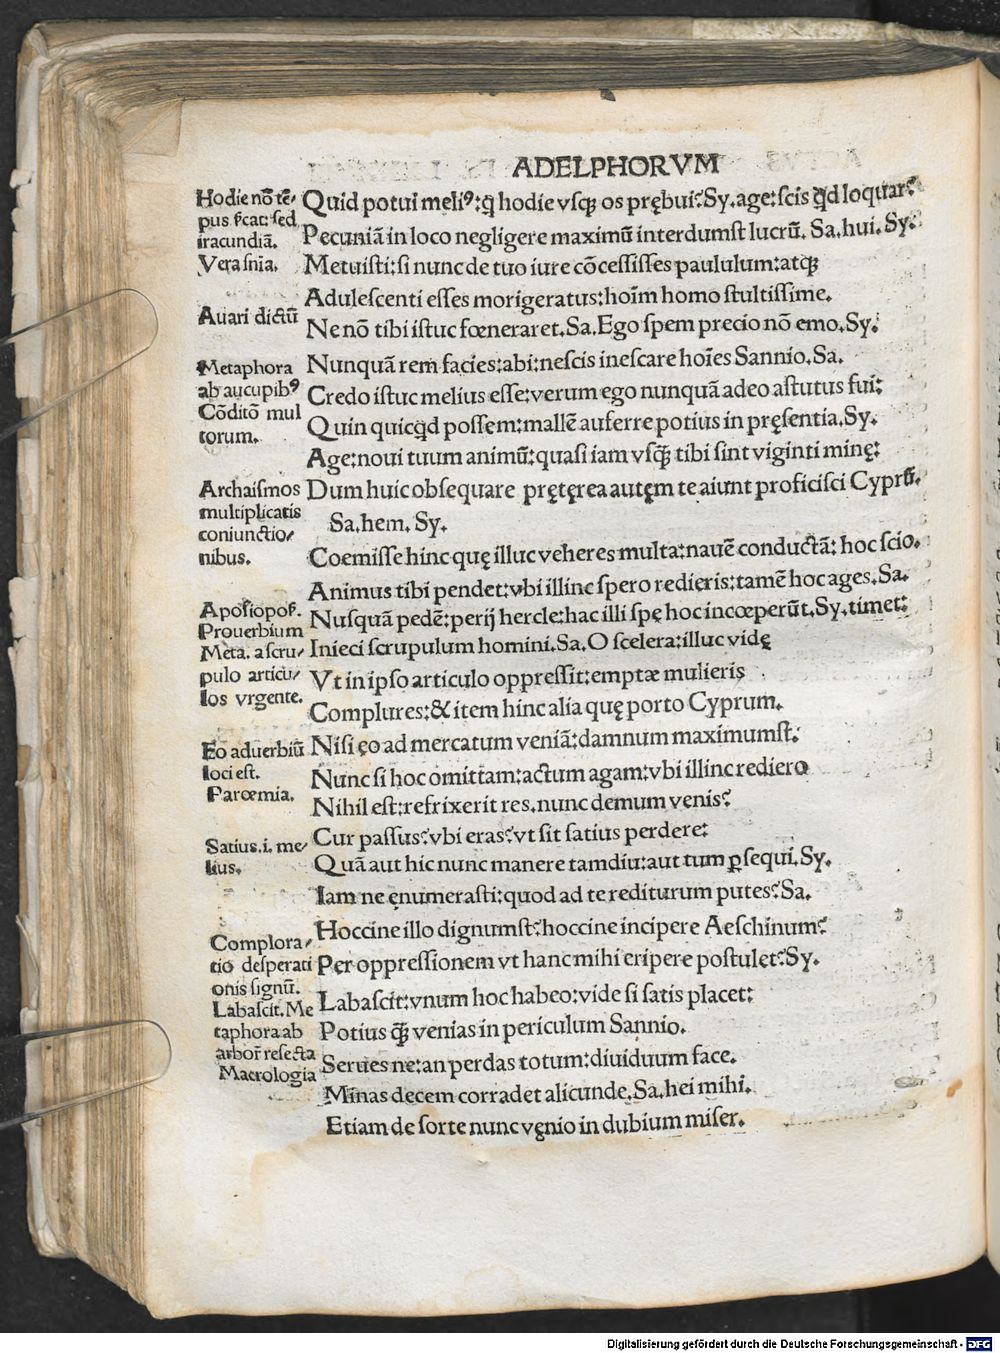 ADELPHORVM
Hodie nō tē⸗
pus ſ̄cat: sed
iracundiā.
Vera ſnia.
Auari dictū
Metaphora
ab aucupibꝰ
Cōditō mul
torum.
Archaiſmos
multiplicatis
coniunctio⸗
nibus.
Apoſiopoſ.
Prouerbium
Meta. a ſcru⸗
pulo articu⸗
los vrgente.
Eo aduerbiū
loci eſt.
Parœmia.
Satius.i. me⸗
lius.
Complora⸗
tio deſperati
onis ſignū.
Labaſcit. Me
taphora ab
arboř reſecta
Macrologia
Quid potui meliꝰ: q̄ hodie vſqꝫ os prębui? Sy. age: ſcis qd loquar?
Pecuniā in loco negligere maximū interdumſt lucrū. Sa. hui. Sy.
Metuiſti: ſi nunc de tuo iure cōceſſiſſes paululum: atqꝫ
Aduleſcenti eſſes morigeratus: hoīm homo ſtultiſſime.
Ne nō tibi iſtuc fœneraret. Sa. Ego ſpem precio nō emo. Sy.
Nunquā rem facies: abi: neſcis ineſcare hoīes Sannio. Sa.
Credo iſtuc melius eſſe: verum ego nunquā adeo aſtutus fui:
Quin quicqd poſſem: mallē auferre potius in pręſentia. Sy.
Age: noui tuum animū: quaſi iam vſqꝫ tibi ſint viginti minę:
Dum huic obſequare prętęrea autęm te aiunt proficiſci Cyprū.
Sa. hem. Sy.
Coemiſſe hinc quę illuc veheres multa: nauē conductā: hoc ſcio.
Animus tibi pendet: vbi illinc ſpero redieris: tamē hoc ages. Sa.
Nuſquā pedē: perij hercle: hac illi ſpę hoc incœperūt. Sy. timet:
Inieci ſcrupulum homini. Sa. O ſcelera: illuc vidę
Vt in ipſo articulo oppreſſit: emptæ mulieris
Complures: & item hinc alia quę porto Cyprum.
Niſi ęo ad mercatum veniā: damnum maximumſt.
Nunc ſi hoc omittam: actum agam: vbi illinc rediero
Nihil eſt: refrixerit res. nunc demum venis?
Cur paſſus? vbi eras? vt ſit ſatius perdere:
Quā aut hic nunc manere tamdiu: aut tum ꝑſequi. Sy.
Iam ne ęnumeraſti: quod ad te rediturum putes? Sa.
Hoccine illo dignumſt? hoccine incipere Aeſchinum?
Per oppreſſionem vt hanc mihi eripere poſtulet? Sy.
Labaſcit: vnum hoc habeo: vide ſi ſatis placet:
Potius qꝫ̄ venias in periculum Sannio.
Serues ne: an perdas totum: diuiduum face.
Minas decem corradet alicunde. Sa. hei mihi.
Etiam de ſorte nunc vęnio in dubium miſer.
Digitalisierung gefördert durch die Deutsche Forschungsgemeinschaft - DFG